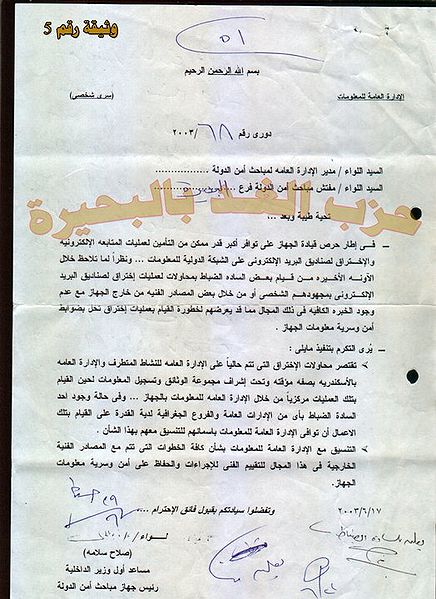 وثيقة رقم 5
٥١
بسم الله الرحمن الرحيم
الإدارة العامة للمعلومات
(سرى شخصي)
دورى رقم ٦٨ /٢٠٠٣
السيد اللواء / مدير الإدارة العامه لمباحث أمن الدولة ..................
السيد اللواء / مفتش مباحث أمن الدولة فرع
حزب الغد بالبحيرة
تحية طيبة وبعد ...
– فى إطار حرص قيادة الجهاز على توافر أكبر قدر ممكن من التأمين لعمليات المتابعه الإليكترونيه
والإختراق لصناديق البريد الإليكترونى على الشبكة الدولية للمعلومات ... ونظراً لما تلاحظ خلال
الآونه الأخيره من قيام بعض الساده الضباط بمحاولات لعمليات إختراق لصناديق البريد
الإليكترونى بمجهودهم الشخصى أو من خلال بعض المصادر الفنيه من خارج الجهاز مع عدم
وجود الخبره الكافيه فى ذلك المجال مما قد يعرضهم لخطورة القيام بعمليات إختراق تخل بضوابط
أمن وسرية معلومات الجهاز .
– يُرى التكرم بتنفيذ مايلى :
تقتصر محاولات الإختراق التى تتم حالياً على الإدارة العامه للنشاط المتطرف والإداره العامه
بالأسكندريه بصفه مؤقته وتحت إشراف مجموعة الوثائق وتسجيل المعلومات لحين القيام
بتلك العمليات مركزياً من خلال الإدارة العامه للمعلومات بالجهاز ... وفى حالة وجود احد
السادة الضباط بأى من الإدارات العامة والفروع الجغرافية لدية القدرة على القيام بتلك
الاعمال أن توافى الإدارة العامة للمعلومات باسمائهم للتنسيق معهم بهذا الشأن .
التنسيق مع الإدارة العامة للمعلومات بشأن كافة الخطوات التى تتم مع المصادر الفنية
الخارجية فى هذا المجال للتقييم الفنى للإجراءات والحفاظ على أمن وسرية معلومات
الجهاز.
وتفضلوا سيادتكم بقبول فائق الإحترام ...
٢٠٠٣/٦/١٧
لـــواء /
(صلاح سلامه)
مساعد أول وزير الداخلية
رئيس جهاز مباحث أمن الدولة